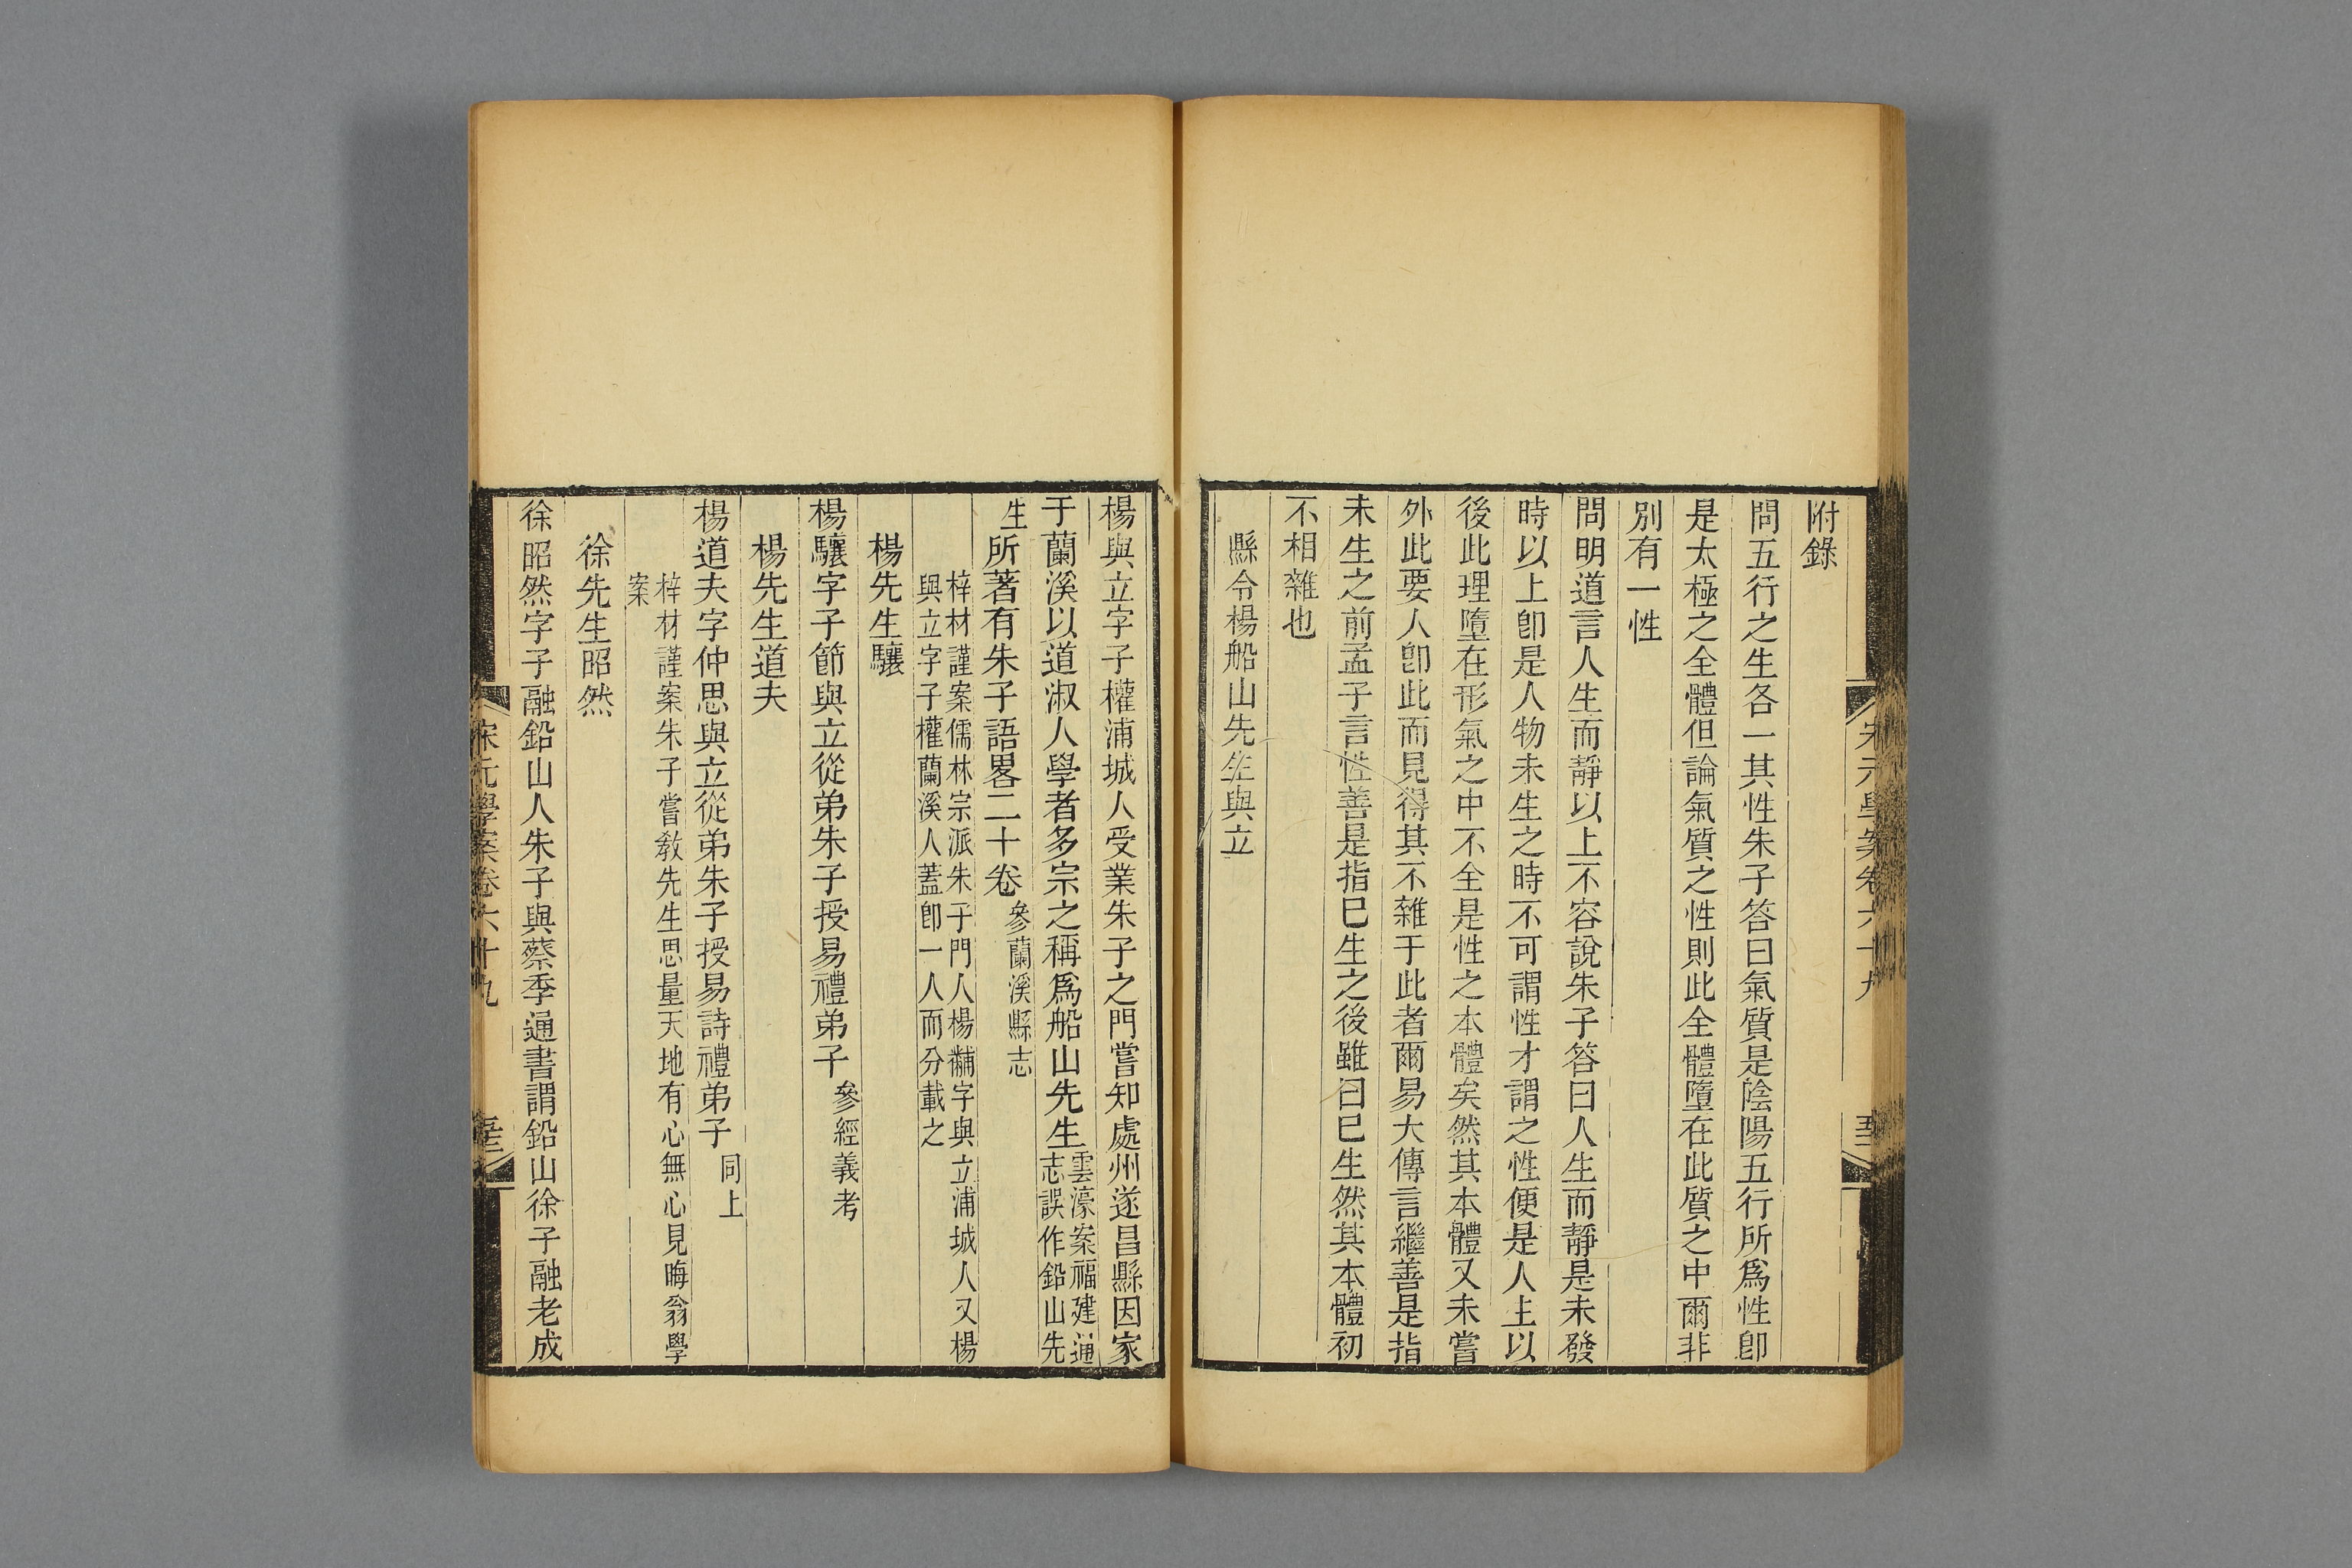 附錄
問五行之生各一其性朱子答曰氣質是陰陽五行所爲性卽
是太極之全體但論氣質之性則此全體墮在此質之中爾非
別有一性
問明道言人生而靜以上不容說朱子答曰人生而靜是未發
時以上卽是人物未生之時不可謂性才謂之性便是人生以
後此理墮在形氣之中不全是性之本體矣然其本體又未嘗
外此要人卽此而見得其不雜于此者爾易大傳言繼善是指
未生之前孟子言性善是指已生之後雖曰已生然其本體初
不相雜也
縣令楊船山先生與立
楊與立字子權浦城人受業朱子之門嘗知處州遂昌縣因家
于蘭溪以道淑人學者多宗之稱爲船山先生
雲濠案福建通
志誤作鉛山先
生
所著有朱子語畧二十卷
參蘭溪縣志
梓材謹案儒林宗派朱子門人楊黼字與立浦城人又楊
與立字子權蘭溪人蓋卽一人而分載之
楊先生驤
楊驤字子節與立從弟朱子授易禮弟子
參經義考
楊先生道夫
楊道夫字仲思與立從弟朱子授易詩禮弟子
同上
梓材謹案朱子嘗敎先生思量天地有心無心見晦翁學
案
徐先生昭然
徐昭然字子融鉛山人朱子與蔡季通書謂鉛山徐子融老成
宋元學案卷六十九